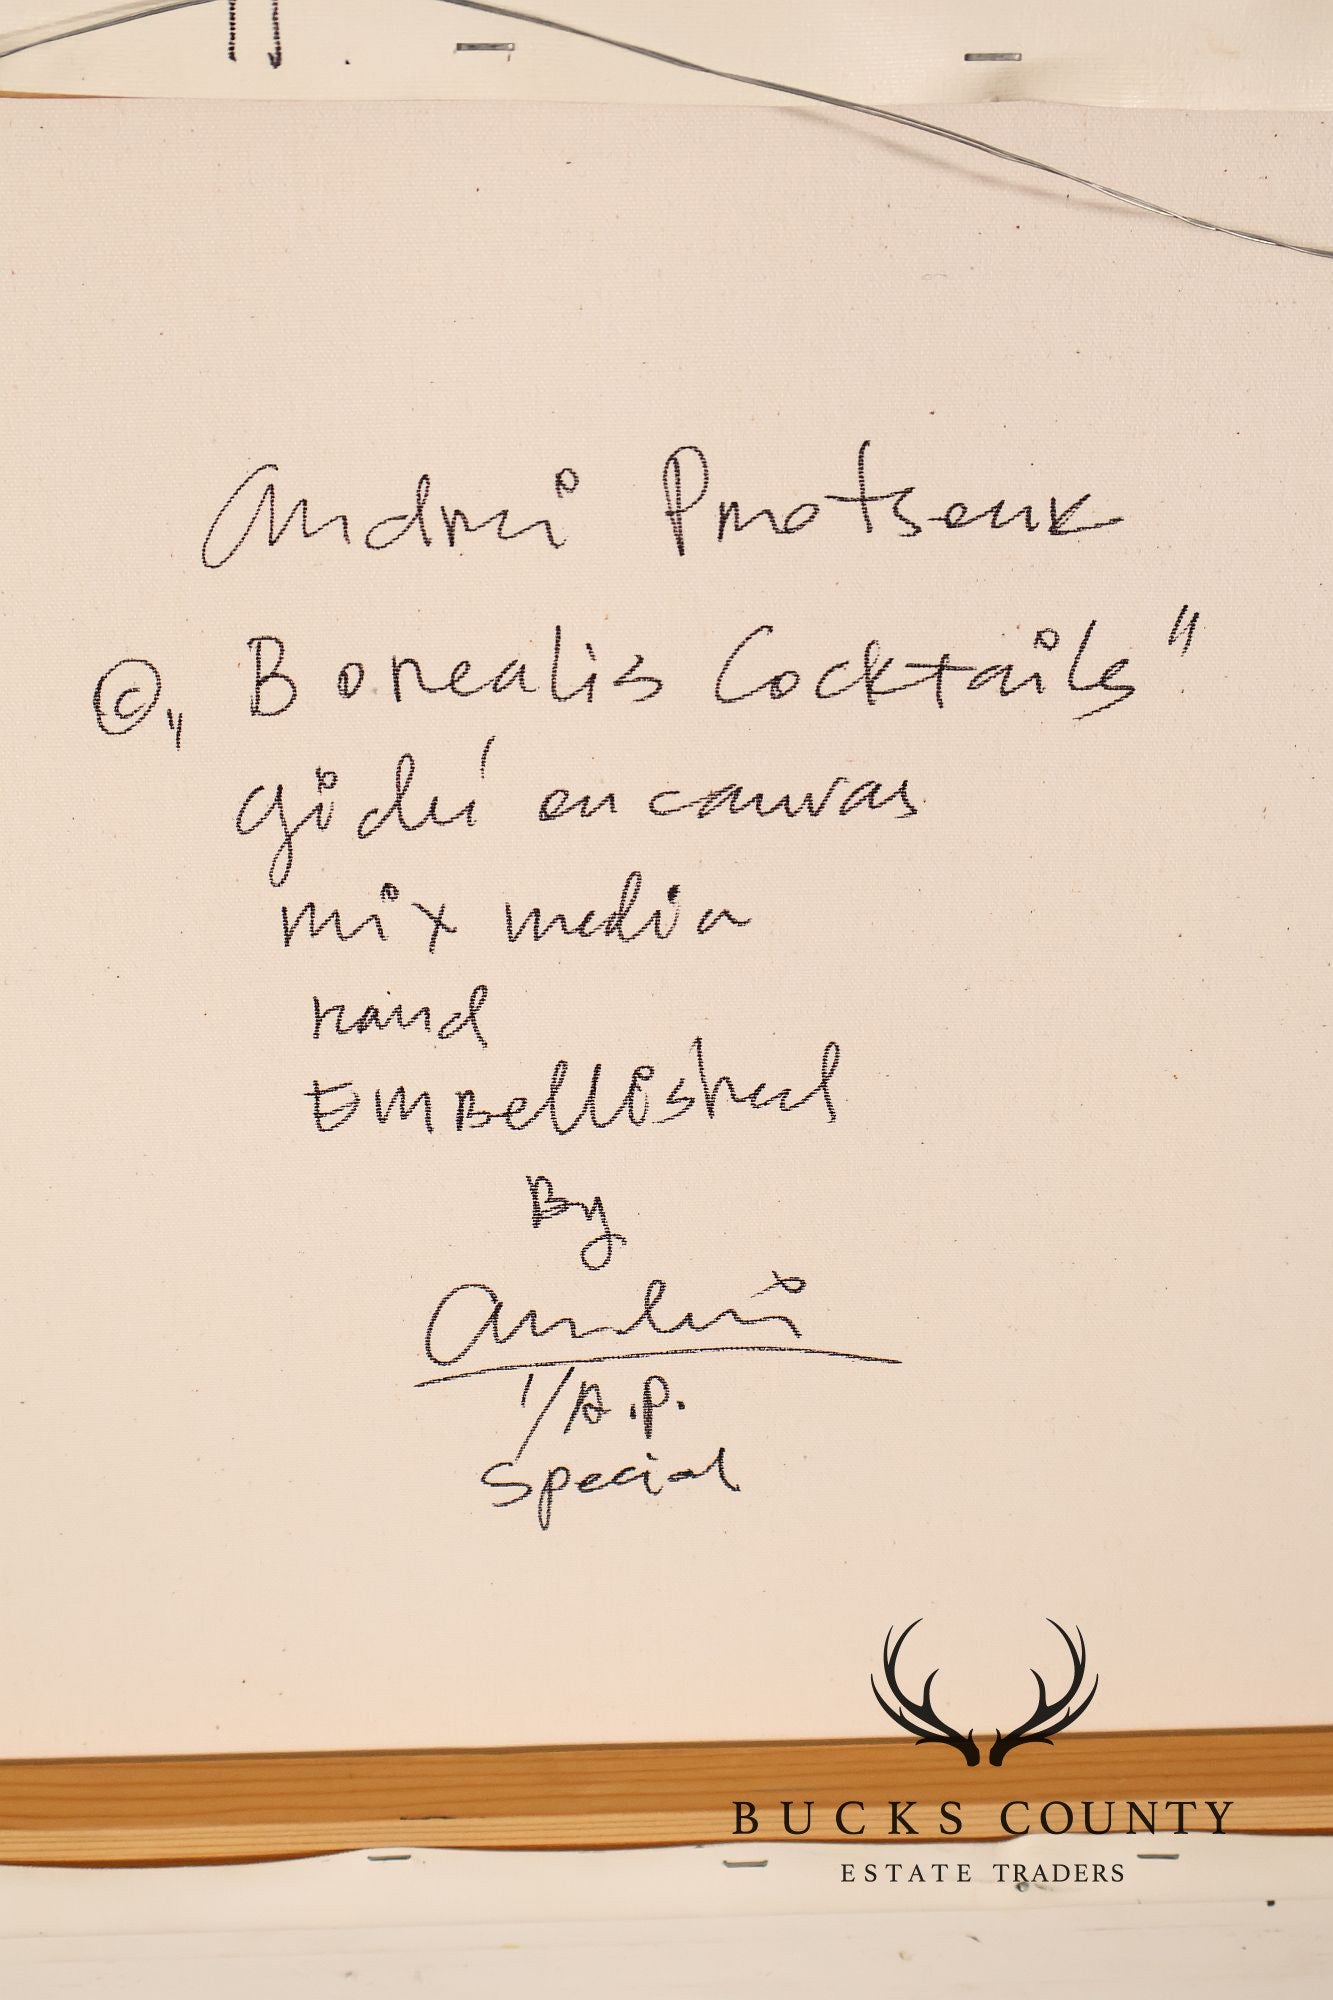 Andrei Protsouk
© „Borealis Cocktails"
giclé on canvas
mix media
hand
Embellished
By
Andrei
1/A.P.
Special
BUCKS COUNTY
ESTATE TRADERS